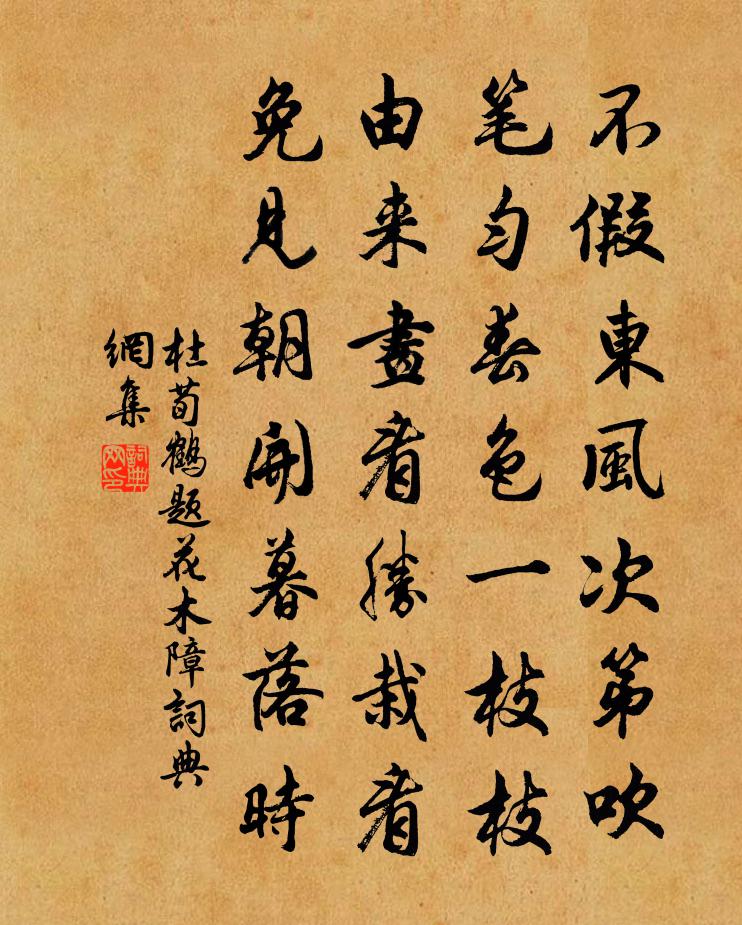 不假東風次第吹
笔匀春色一枝枝
由来畫看勝栽看
免見朝開暮落時
杜荀鶴题花木障詞典
網集
詞典
网印